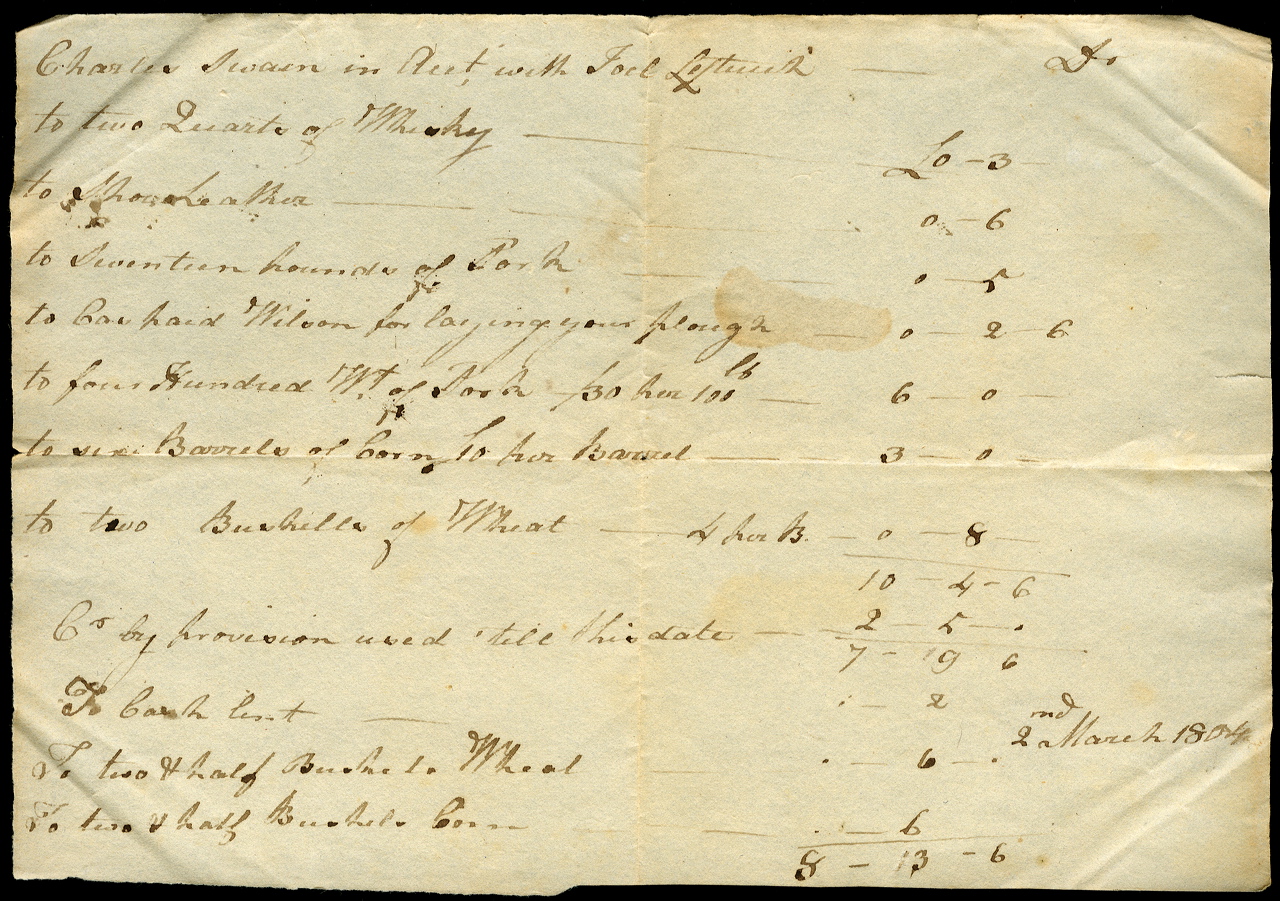 Charles Swain in Acct, with Joel Leftwich — Dr
to two Quarts of Whisky — £0 - 3 -
to Shoe Leather — 0 - 6
to Seventeen pounds of Pork — 0 - 5
to Cash paid Wilson for laying your plough — 0 - 2 - 6
to four Hundred Wt. of Pork /30 per 100 lb — 6 - 0 -
to six Barrels of Corn, 10 per Barrel — 3 - 0 -
to two Bushells of Wheat — 4 per B. - 0 - 8 -
10 - 4 - 6
Cr by provision used 'till this date — 2 - 5 - .
7 - 19 6
To Cash lent — . - 2
2nd March 1804
To two & half Bushels Wheat — . - 6 - .
To two & half Bushels Corn — . - 6
8 - 13 - 6